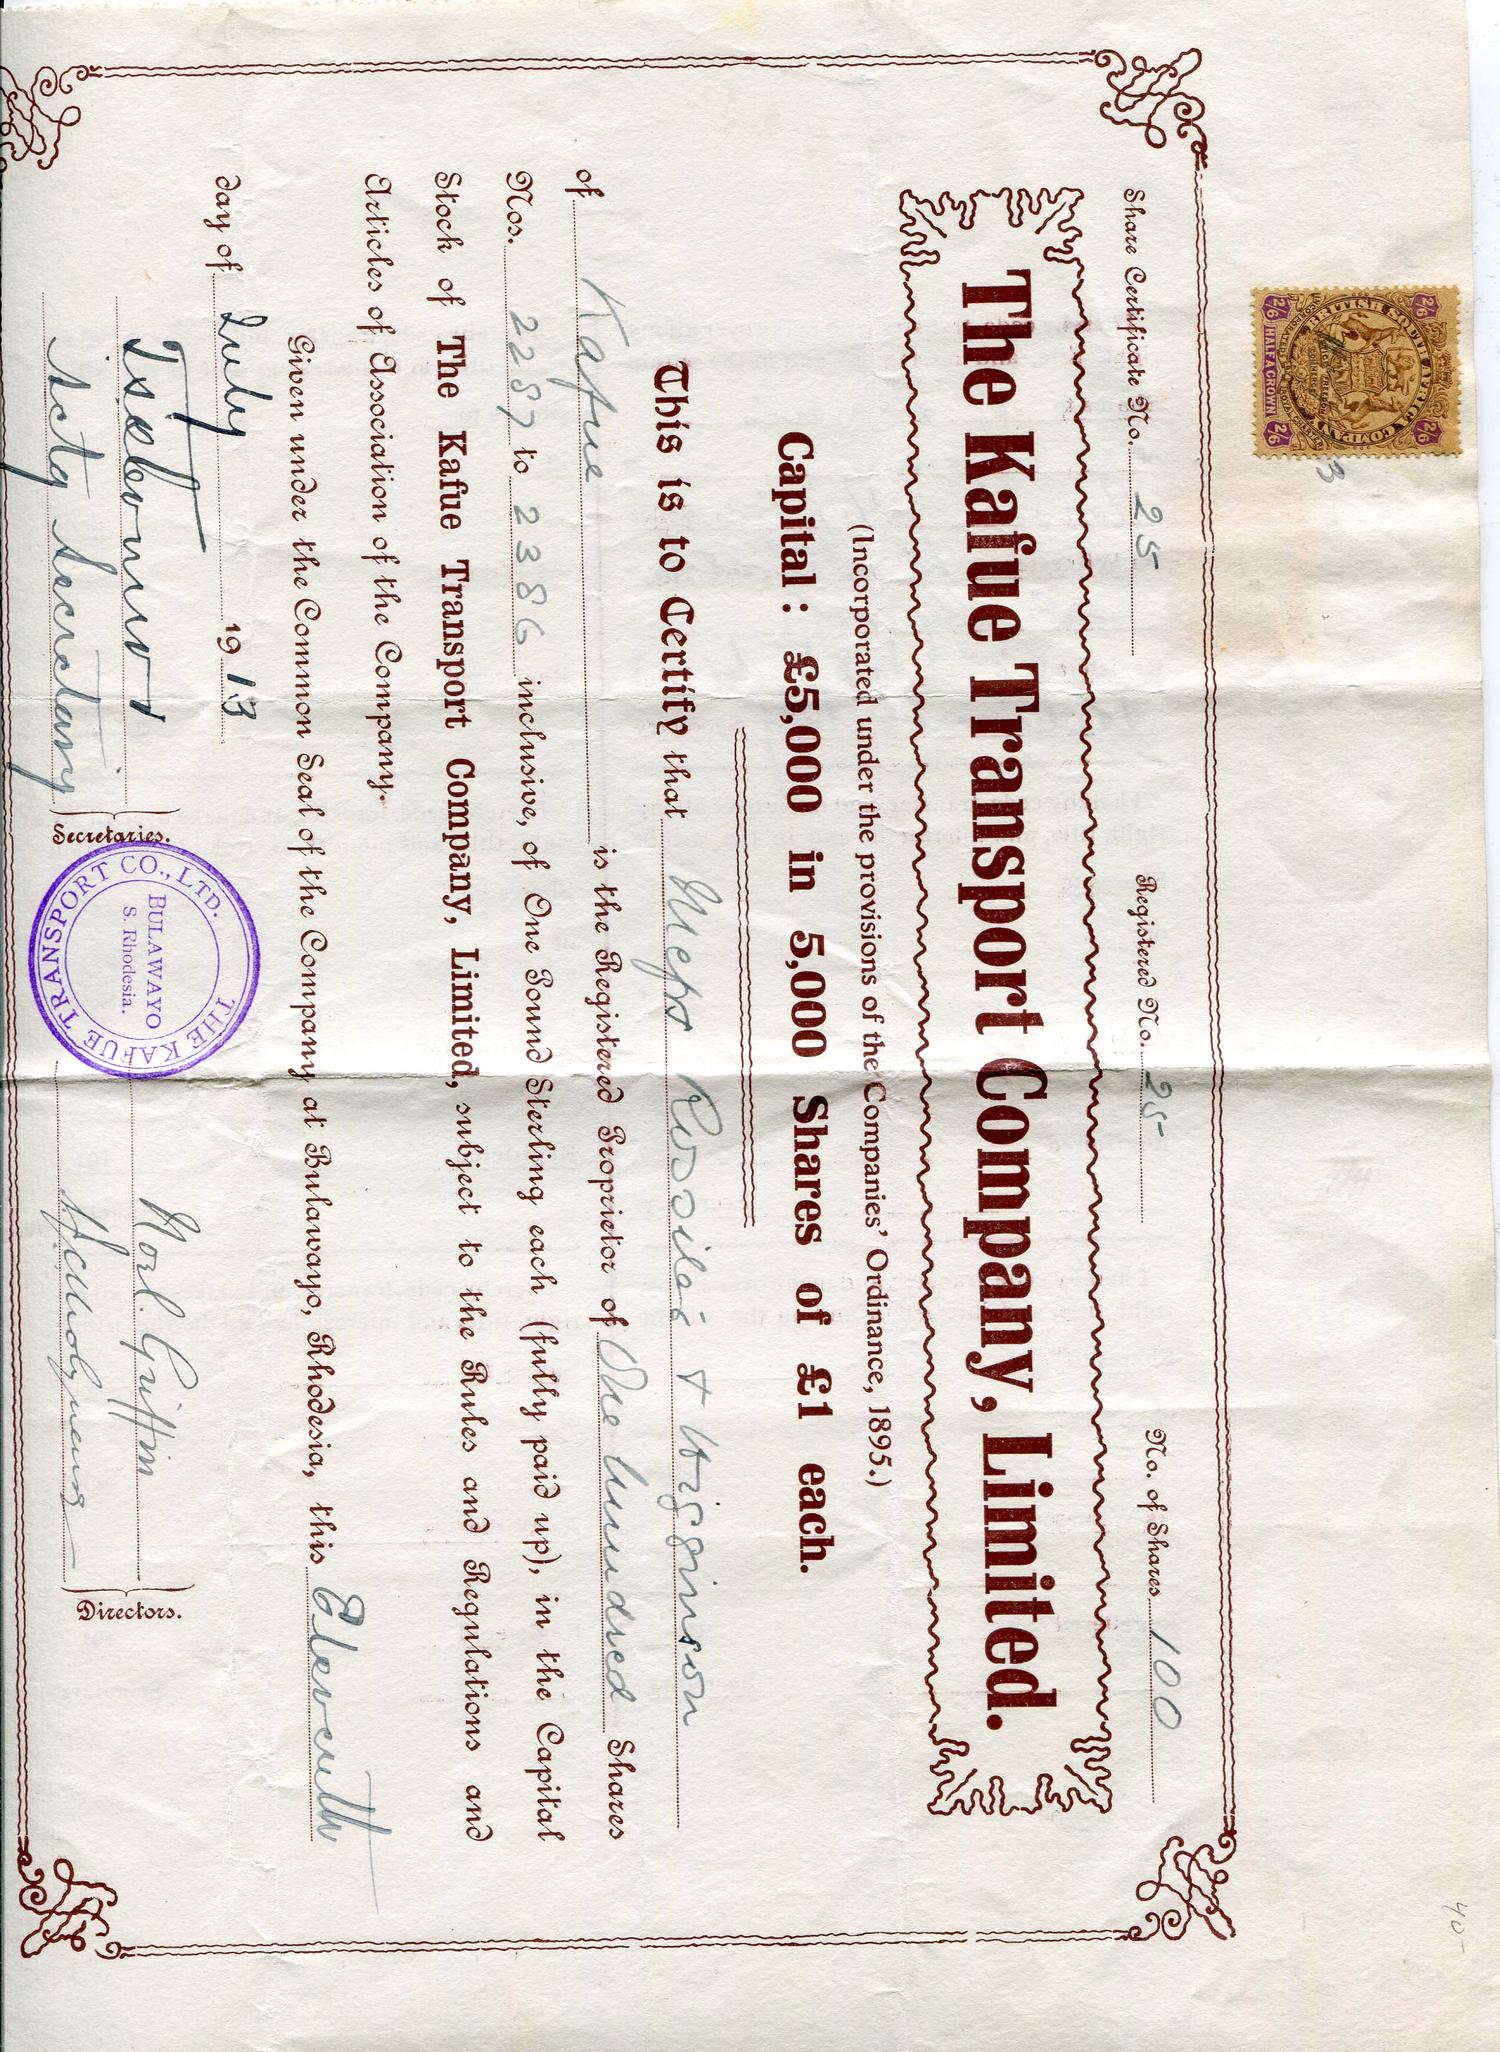 2/6 BRITISH SOUTH AFRICA COMPANY 2/6
2/6 HALF A CROWN 2/6
40-
Share Certificate No. 25 Registered No. 25 No. of Shares 100
The Kafue Transport Company, Limited.
(Incorporated under the provisions of the Companies' Ordinance, 1895.)
Capital: £5,000 in 5,000 Shares of £1 each.
This is to Certify that Messrs & Higginson
of Kafue is the Registered Proprietor of One hundred Shares
Nos. 2287 to 2386 inclusive, of One Pound Sterling each (fully paid up), in the Capital
Stock of The Kafue Transport Company, Limited, subject to the Rules and Regulations and
Articles of Association of the Company.
Given under the Common Seal of the Company at Bulawayo, Rhodesia, this Eleventh
day of July 1913
Actg Secretary
Secretaries.
THE KAFUE TRANSPORT CO., LTD.
BULAWAYO
S. Rhodesia.
Griffin
Directors.